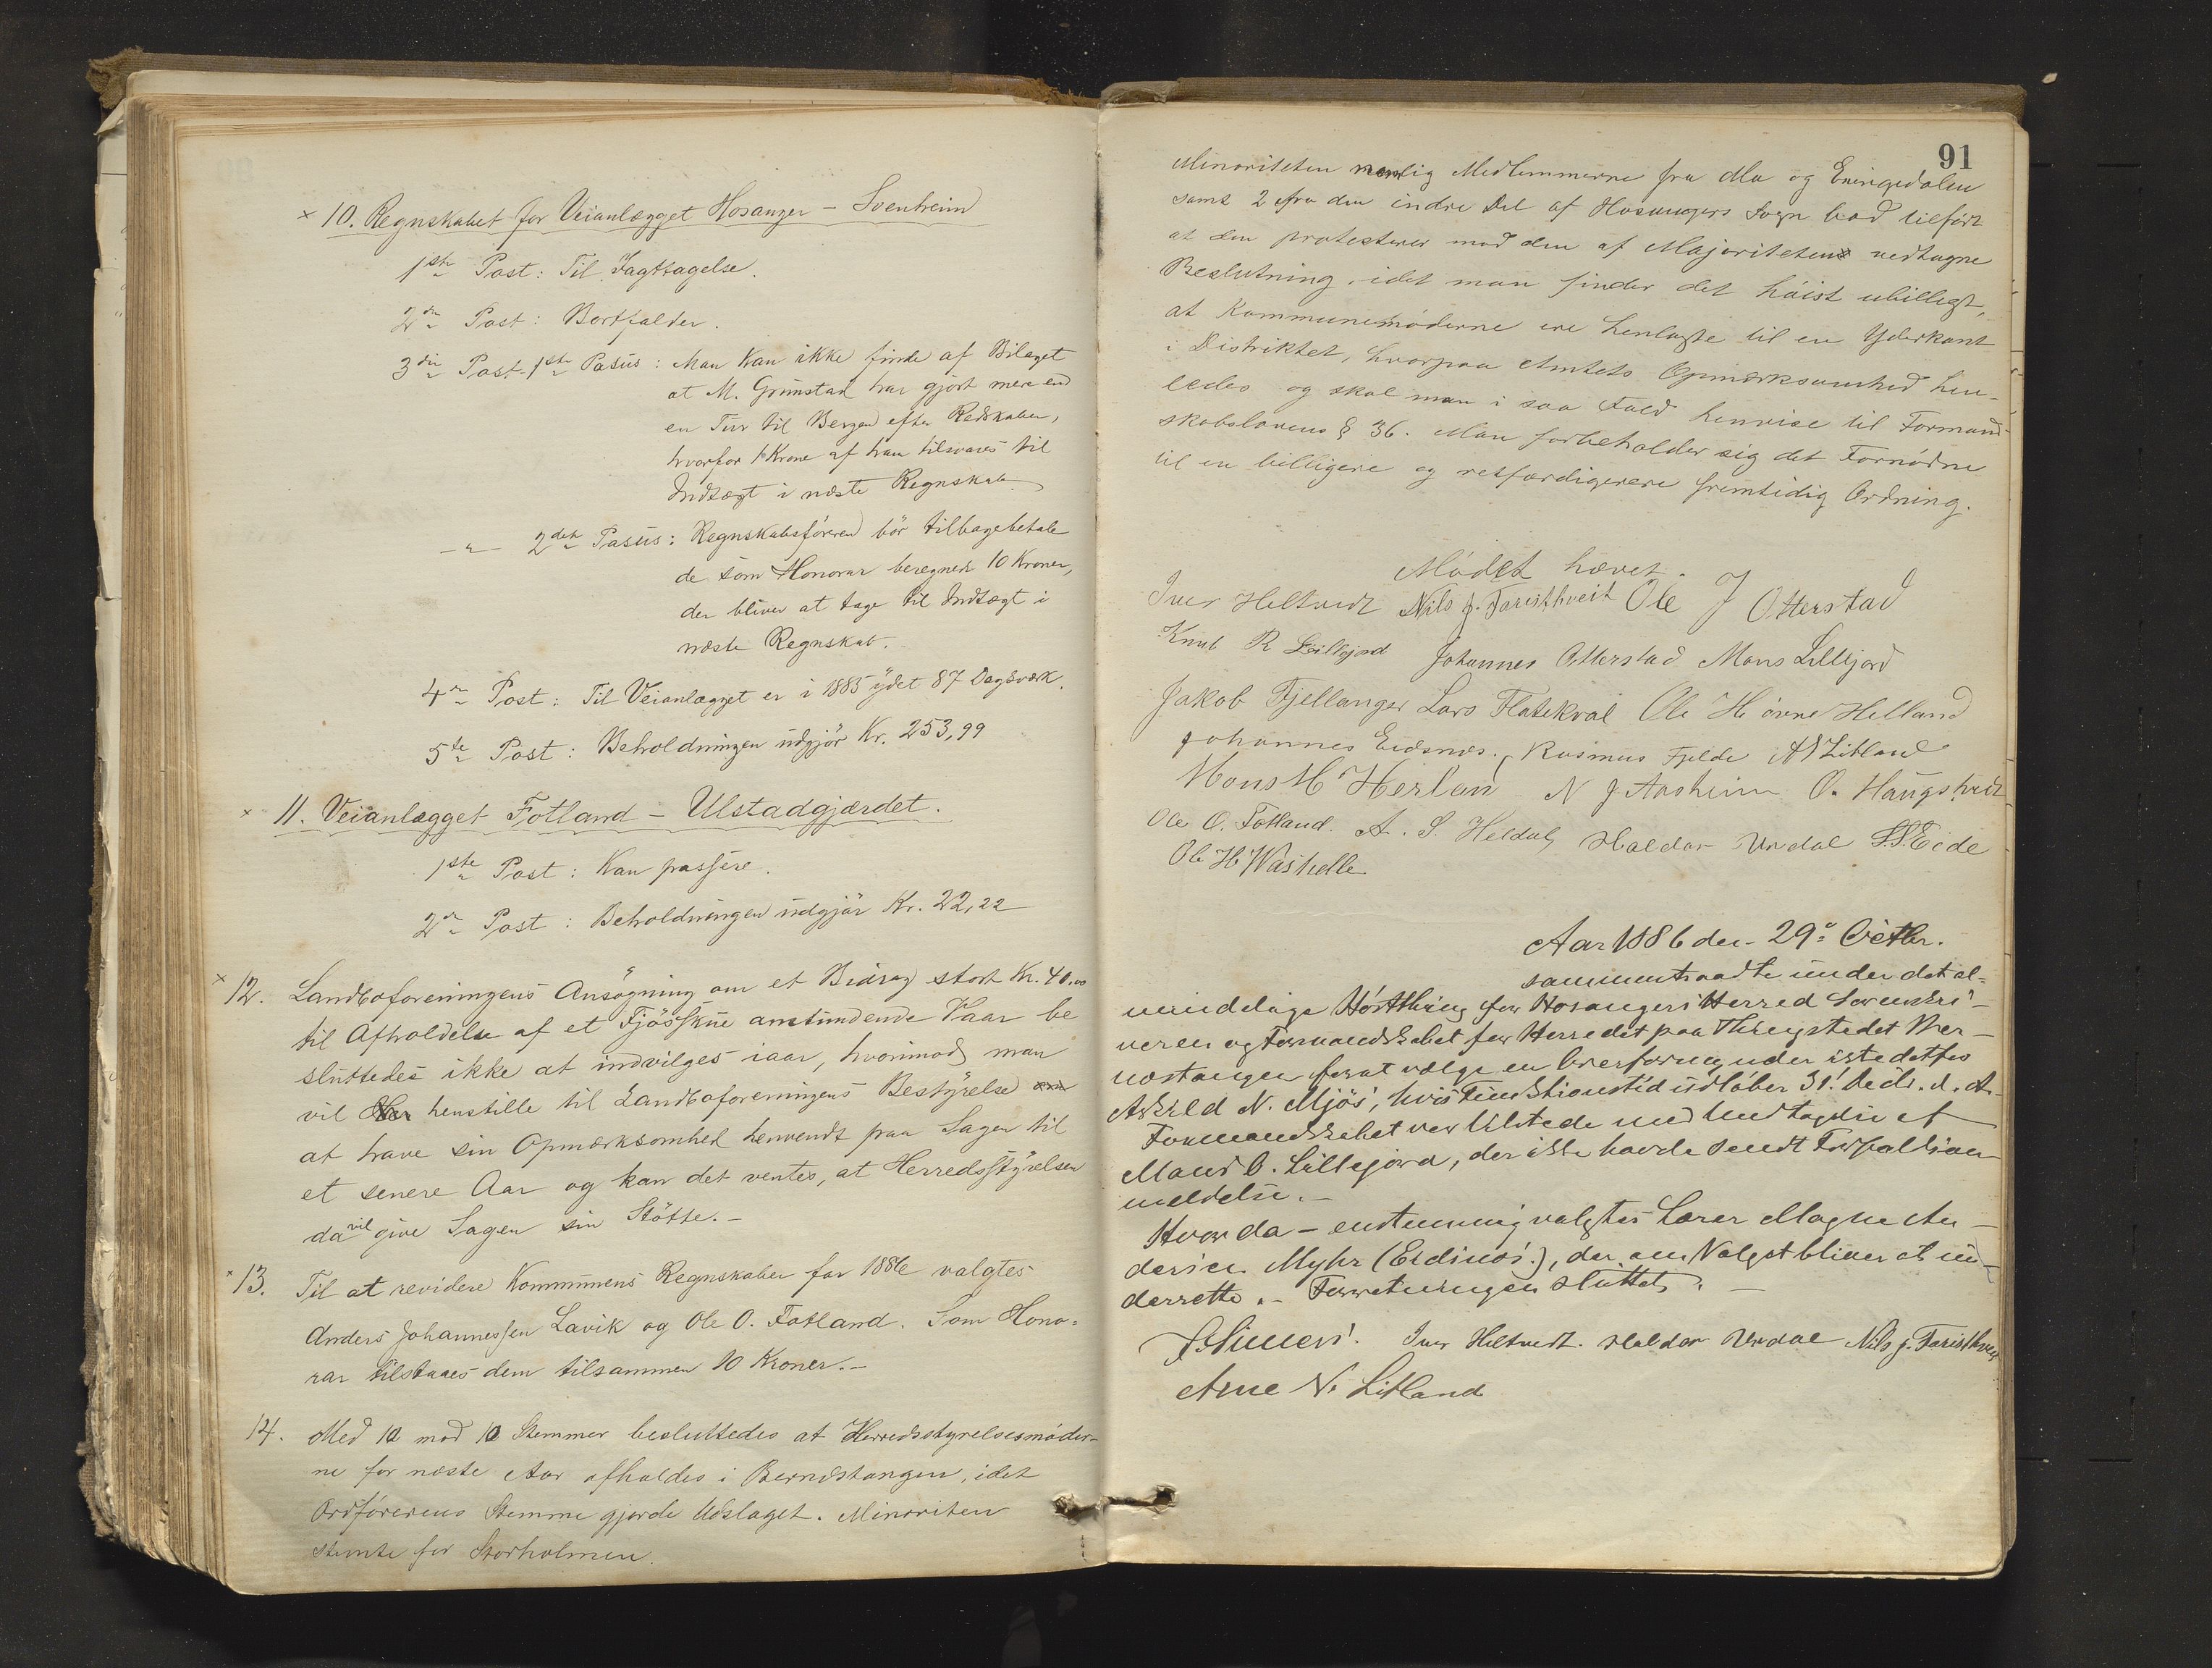 × 10. Regnskabet for Veianlægget Hosanger – Svenheim
1ste Post: Til Iagttagelse.
2den Post: Bortfalder.
3die Post. 1ste Pasus: Man kan ikke finde af Bilaget
at M. Grimstad har gjort mere end
en Tur til Bergen efter Redskaber,
hvorfor 1 Krone af ham tilsvares til
Indtægt i næste Regnskab
–〃– 2den Pasus: Regnskabsføreren bör tilbagebetale
de som Honorar beregnede 10 Kroner,
der bliver at tage til Indtægt i
næste Regnskab.
4de Post: Til Veianlægget er i 1885 ydet 87 Dagsværk.
5te Post: Beholdningen udgjör Kr. 253,99
× 11. Veianlægget Fotland – Ulstadgjærdet.
1ste Post: Kan passere.
2den Post: Beholdningen udgjör Kr. 22,22
× 12. Landboforeningens Ansögning om et Bidrag stort Kr. 40,00
til Afholdelse af et Fjösskue anstundende Vaar be
sluttedes ikke at indvilges iaar, hvorimod man
vil henstille til Landboforeningens Bestyrelse
at have sin Opmærksomhed henvendt paa Sagen til
et senere Aar og kan det ventes, at Herredsstyrelsen
da vil give Sagen sin Stötte. –
× 13. Til at revidere Kommunens Regnskaber for 1886 valgtes
Anders Johannessen Lavik og Ole O. Fotland. Som Hono-
rar tilstaaes dem tilsammen 10 Kroner. –
14. Med 10 mod 10 Stemmer besluttedes at Herredsstyrelsesmöder-
ne for næste Aar afholdes i Bernæstangen, idet
Ordförerens Stemme gjorde Udslaget. Minoriten
stemte for Storholmen.
91
Minoriteten nemlig Medlemmerne fra Mo og Eningedalen
samt 2 fra den indre Del af Hosangers Sogn bad tilført
at den protesterer mod den af Majoriteten vedtagne
Beslutning, idet man finder det höist ubilligt,
at Kommunemöderne ere henlagte til en Yderkant
i Distriktet, hvorpaa Amtets Opmærksomhed hen-
ledes og skal man i saa Fald henvise til Formand-
skabslovens § 36. Man forbeholder sig det Fornödne
til en billigere og retfærdigerere fremtidig Ordning.
Mödet hævet.
Iver Heltvedt Nils J. Faristhveit Ole J Otterstad
Knut R Leilljord Johannes Otterstad Mons Lilleljord
Jakob Fjellanger Lars Flatekval Ole H övre Helland
Johannes Eidsnes. Rasmus Fjelde AN Litland
Mons M Herlan N J Aasheim O. Haugstvedt
Ole O. Fotland. A. S. Heldal Haldor Urdal S.S. Eide
Ole H. Washelle
Aar 1886 den 29de Octbr.
sammentraadte under det al-
mindelige Hösthing for Hosangers Herred Sorenskri-
veren og Formandskabet for Herredet paa Thingstedet Ber-
næstangen for at vælge en Overformynder istedetfor
Askild N. Mjös, hvis Funktionstid udlöber 31. Decbr. d. A.
Formandskabet var tilstede med Undtagelse af
Mons O. Lilleljord, der ikke havde sendt Forfaldsan-
meldelse. –
Hvorda – enstemmig valgtes Lærer Magne An-
dersen Myhr (Eidsnes), der om Valget bliver at un-
derrette. – Forretningen sluttet. –
Iver Heltvedt. Haldor Urdal Nils J. Faristhveit
Arne N. Litland